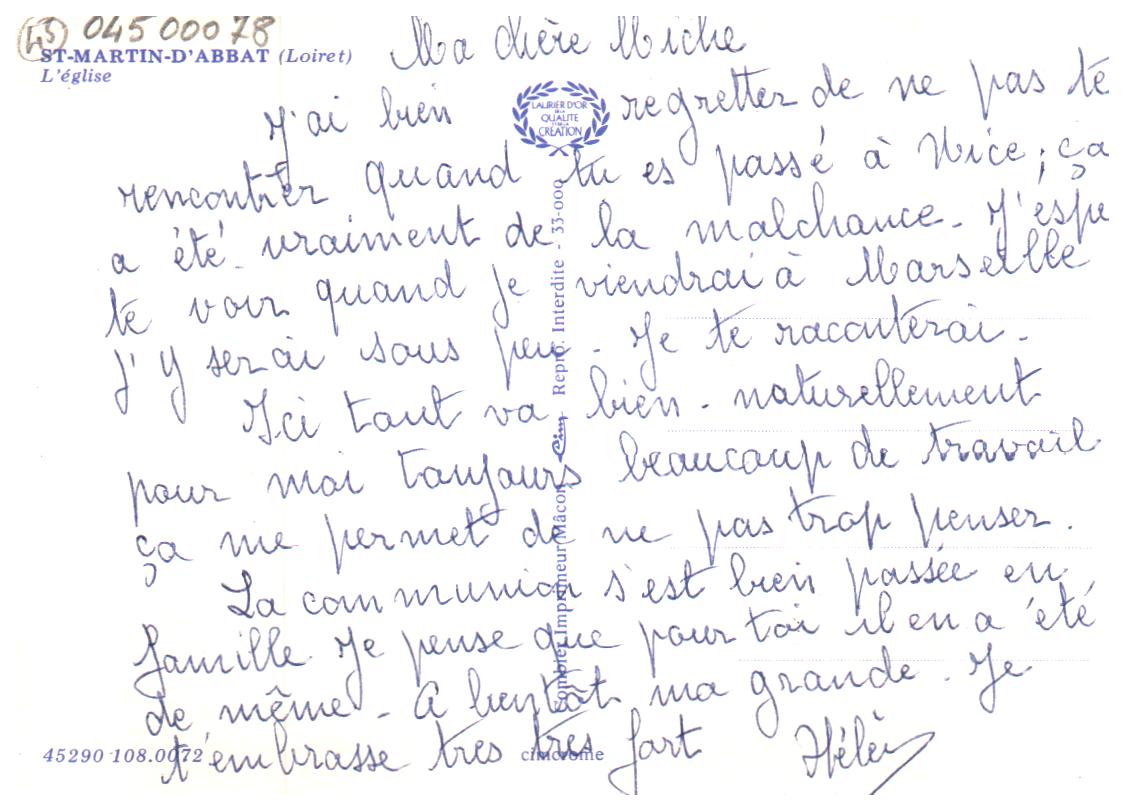 45 045 000 78
ST-MARTIN-D'ABBAT (Loiret)
L'église
LAURIER D'OR
DE LA
QUALITÉ
ET DE LA
CRÉATION
Ma chère Miche
J'ai bien regretter de ne pas te
rencontrer quand tu es passé à Nice ; ça
a été vraiment de la malchance - J'espe
te voir quand je viendrai à Marseille
j'y serai sous peu - Je te raconterai -
Ici tout va bien - naturellement
pour moi toujours beaucoup de travail
ça me permet de ne pas trop penser.
La communion s'est bien passée en
famille. Je pense que pour toi il en a été
de même - A bientôt ma grande. Je
t'embrasse tres tres fort Hélèn
Combier Imprimeur Mâcon Cim Repro. Interdite - 33-000
45290 108.0072
cimcrome